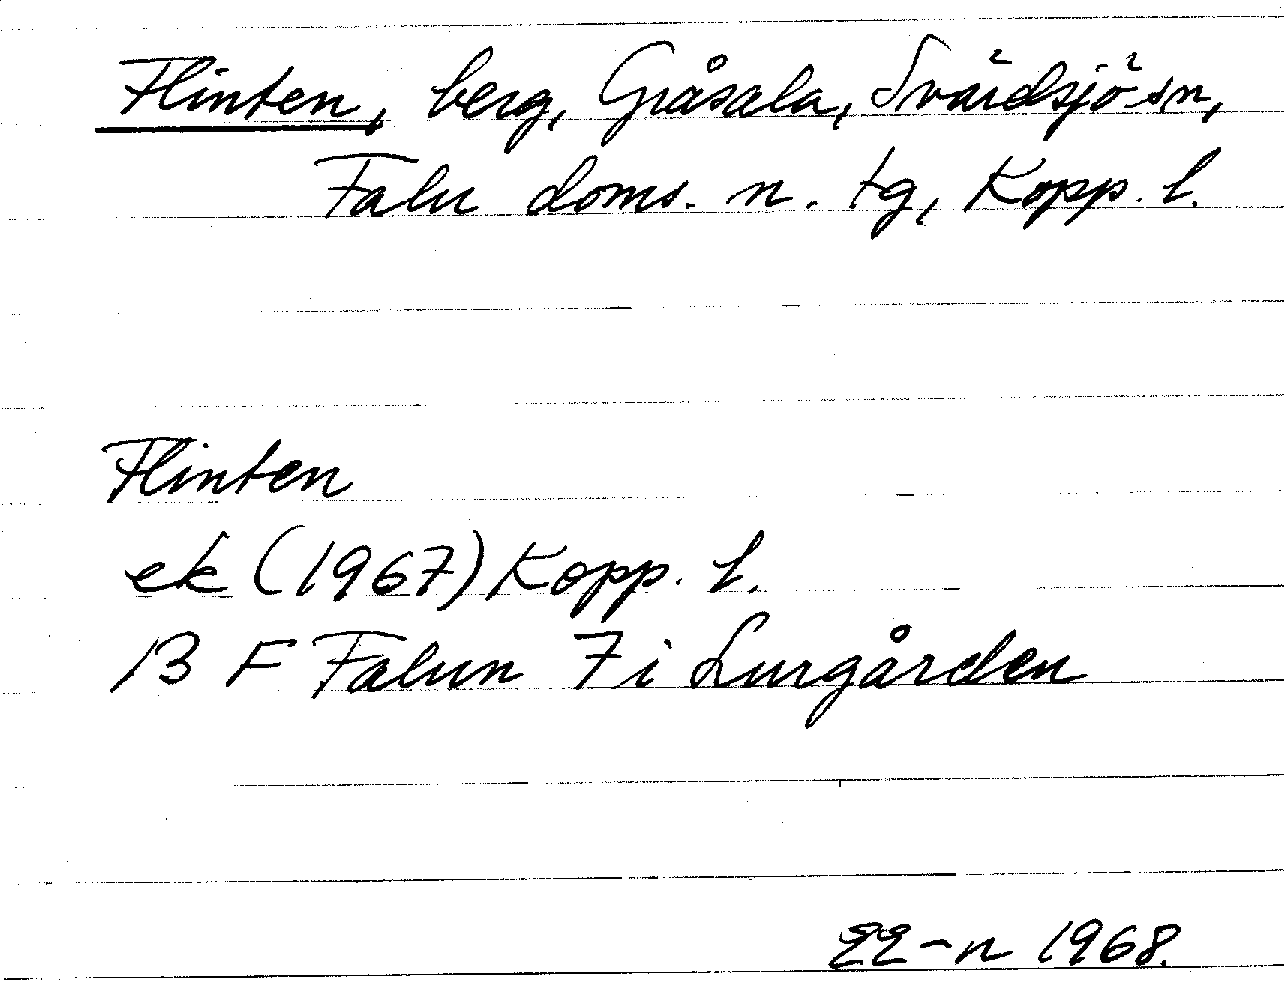 Flinten, berg, Gråsala, Svärdsjö sn,
Falu doms. n. tg, Kopp. l.
Flinten
ek (1967) Kopp. l.
13 F Falun 7 i Lurgården
EE-n 1968.